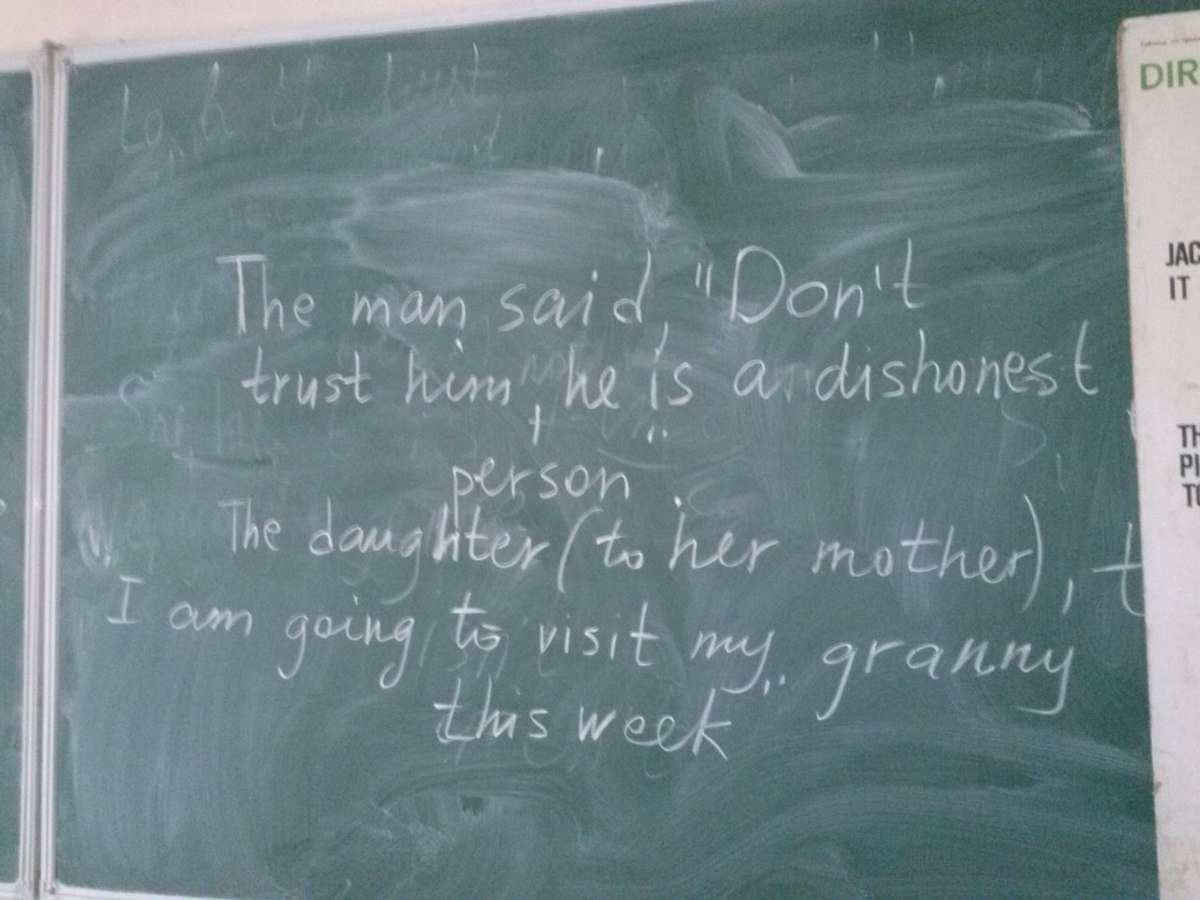 The man said, "Don't
trust him, he is a dishonest
person
The daughter (to her mother), t
I am going to visit my granny
this week
DIR
JAC
IT
TH
PI
TO